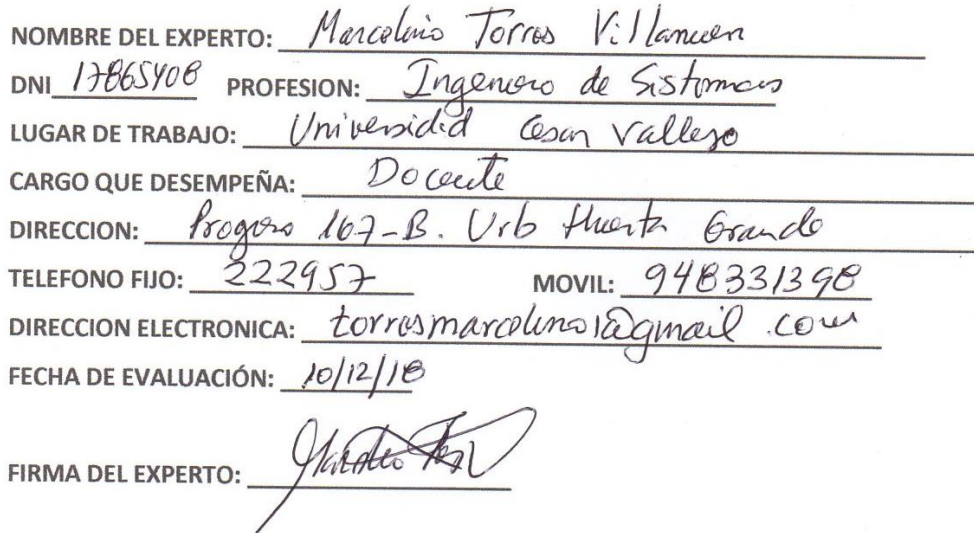 NOMBRE DEL EXPERTO: Marcelino Torres Villanueva
DNI 17865408 PROFESION: Ingeniero de Sistemas
LUGAR DE TRABAJO: Universidad Cesar Vallejo
CARGO QUE DESEMPEÑA: Docente
DIRECCION: Progreso 167-B. Urb Huerta Grande
TELEFONO FIJO: 222957 MOVIL: 948331398
DIRECCION ELECTRONICA: torresmarcelino1@gmail.com
FECHA DE EVALUACIÓN: 10/12/18
FIRMA DEL EXPERTO: